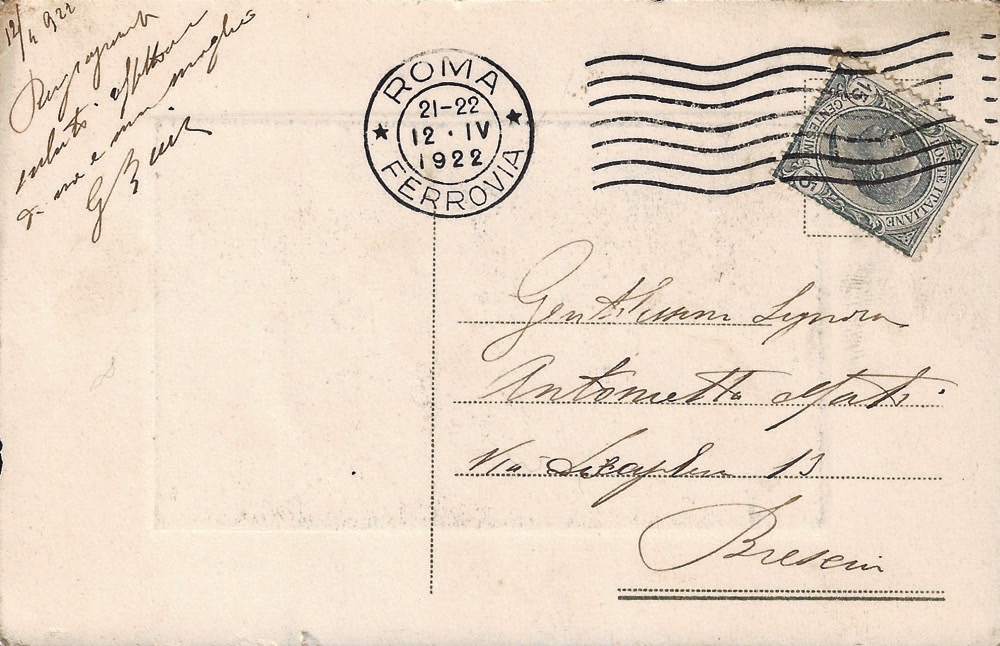 12/4 922
Ringraziamenti
saluti affettuosi
da me e mia moglie
G
ROMA
21-22
12 · IV
1922
FERROVIA
15
CENTESIMI
15
POSTE ITALIANE
Gentilissima Signora
Antonietta
Via 13
Brescia